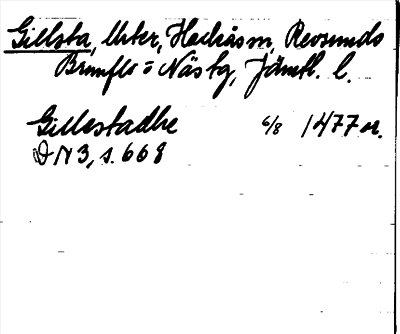 Gillsta, Utter, Hackås sn, Revsunds
Brunflo o Näs tg, Jämtl. l.
Gillestadhe 6/8 1477 or.
DN 3, s. 668